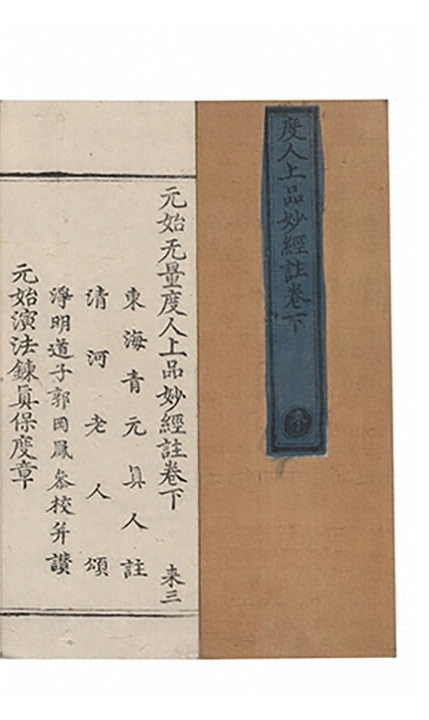 度人上品妙經註卷下
来三
元始无量度人上品妙經註卷下 来三
東海青元真人註
清河老人頌
淨明道子郭岡鳳叅校并讚
元始演法鍊真保度章